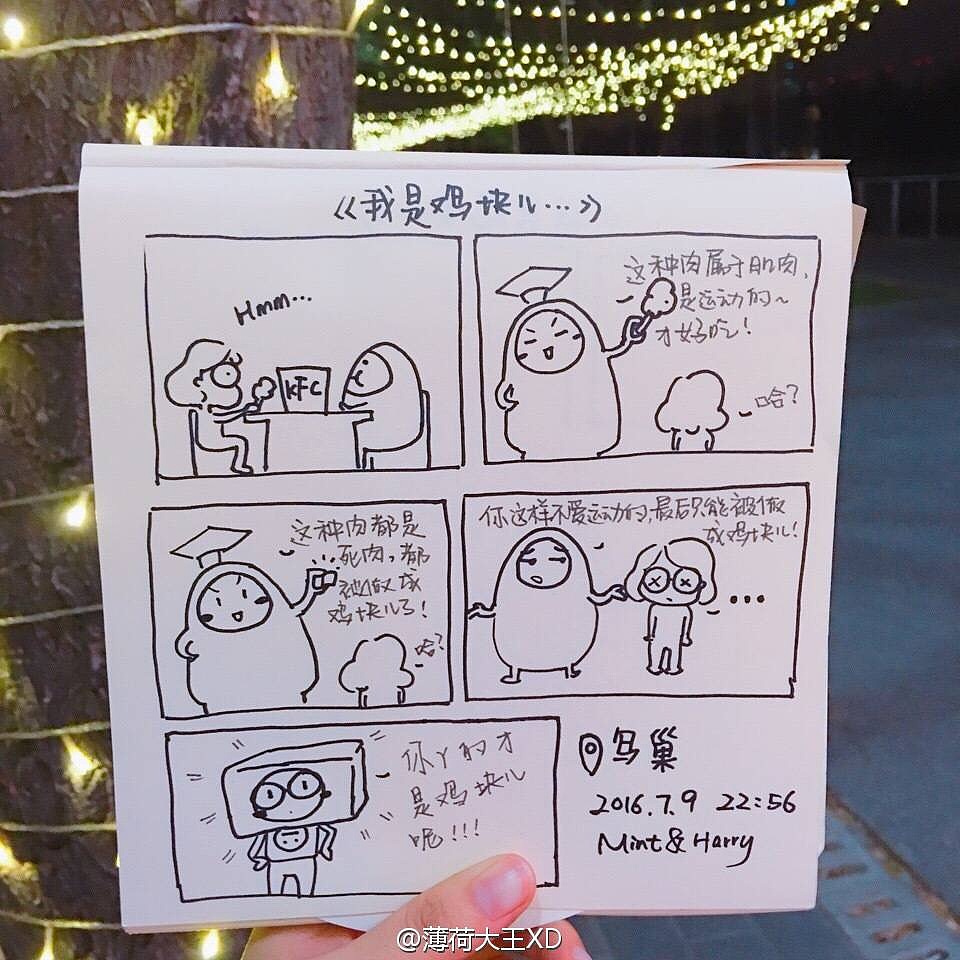 《我是鸡块儿...》
Hmm...
KFC
这种肉属于肌肉,
是运动的~
才好吃!
哈?
这种肉都是
死肉,都
被做成
鸡块儿了!
哈?
你这样不爱运动的,最后只能被做
成鸡块儿!
...
你丫的才
是鸡块儿
呢!!!
鸟巢
2016.7.9 22:56
Mint&Harry
@薄荷大王XD